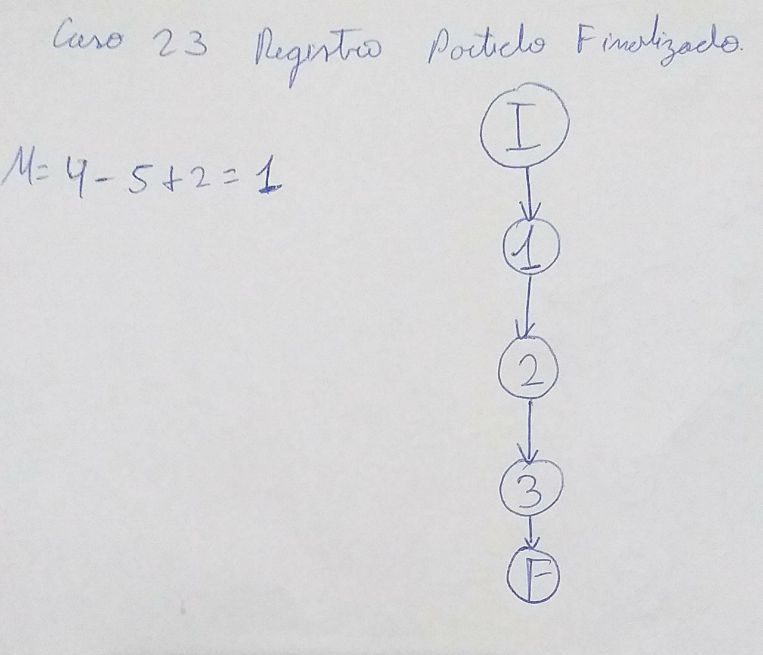 Caso 23 Registro Partido Finalizado.
I
M= 4 - 5 + 2 = 1
1
2
3
F